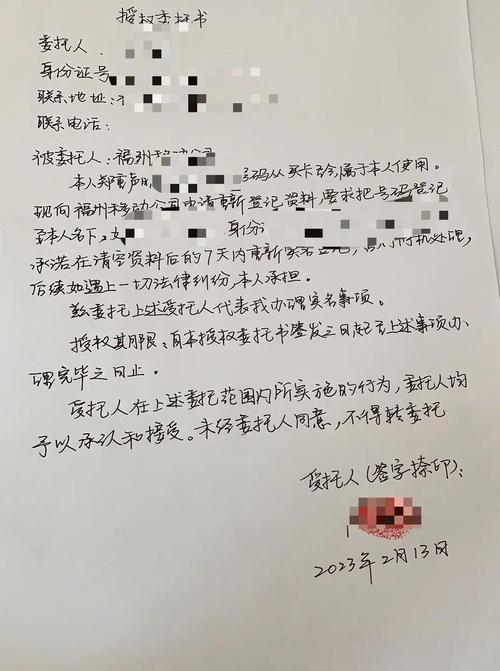 授权委托书
委托人
身份证号
联系地址:
联系电话:
被委托人:福州移动公司
本人郑重声明 号码从买卡至今属于本人使用。
现向福州移动公司申请重新登记资料,要求把号码登记
至本人名下, 身份
承诺在清空资料后的7天内重新实名登记, 停机处理,
后续如遇上一切法律纠纷,本人承担。
兹委托上述受托人代表我办理实名事项。
授权期限:自本授权委托书签发之日起至上述事项办
理完毕之日止。
受托人在上述委托范围内所实施的行为,委托人均
予以承认和接受。未经委托人同意,不得转委托
受托人(签字捺印):
2023年2月13日